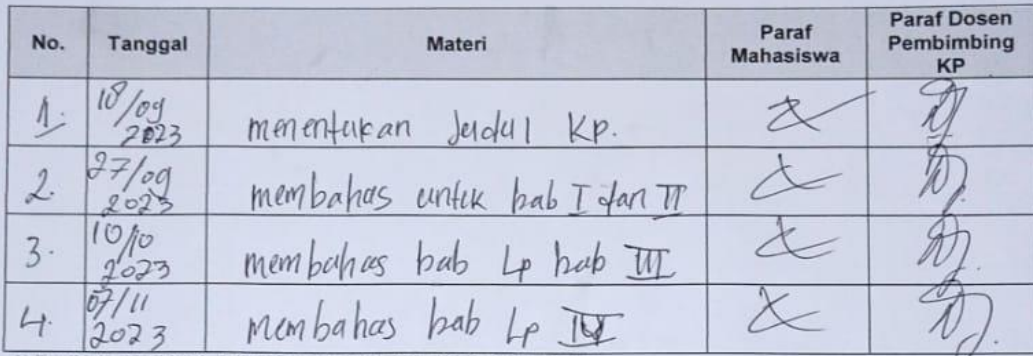 No. Tanggal Materi Paraf Mahasiswa Paraf Dosen Pembimbing KP
1. 18/09 2023 menentukan Judul KP.
2. 27/09 2023 membahas untuk bab I dan II
3. 10/10 2023 membahas bab Lp bab III
4. 07/11 2023 membahas bab Lp IV